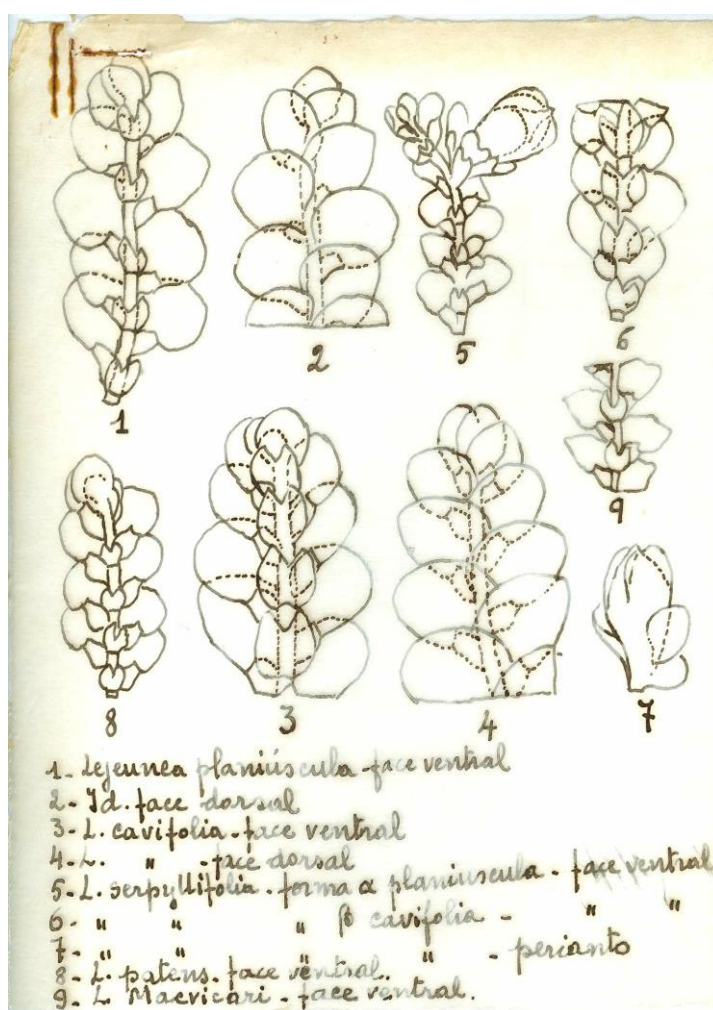 1
2
5
6
9
8
3
4
7
1- Lejeunea planiúscula - face ventral
2- Id. face dorsal
3- L. cavifolia - face ventral
4- L. " - face dorsal
5- L. serpyllifolia - forma α planiuscula - face ventral
6- " " " β cavifolia - " "
7- " " " " - perianto
8- L. patens - face ventral.
9- L. Macvicari - face ventral.